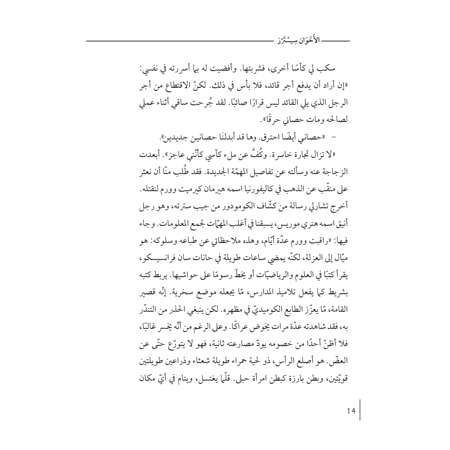 الأَخَوَان سِيسْتَرْز
سكب لي كأسًا أخرى، فشربتها. وأفضيت له بما أسررته في نفسي:
«إن أراد أن يدفع أجر قائد، فلا بأس في ذلك. لكنّ الاقتطاع من أجر
الرجل الذي يلي القائد ليس قرارًا صائبًا. لقد جُرحت ساقي أثناء عملي
لصالحه ومات حصاني حرقًا».
– «حصاني أيضًا احترق. وها قد أبدلنَا حصانين جديدين».
«لا تزال تجارة خاسرة. وكُفَّ عن ملء كأسي كأنّني عاجز». أبعدت
الزجاجة عنه وسألته عن تفاصيل المهمّة الجديدة. فقد طُلب منّا أن نعثر
على منقّب عن الذهب في كاليفورنيا اسمه هيرمان كيرميت وورم لنقتله.
أخرج تشارلي رسالة من كشّاف الكومودور من جيب سترته، وهو رجل
أنيق اسمه هنري موريس، يسبقنا في أغلب المهمّات لجمع المعلومات. وجاء
فيها: «راقبت وورم عدّة أيّام، وهذه ملاحظاتي عن طباعه وسلوكه: هو
ميّال إلى العزلة، لكنّه يمضي ساعات طويلة في حانات سان فرانسيسكو،
يقرأ كتبًا في العلوم والرياضيّات أو يخطّ رسومًا على حواشيها. يربط كتبه
بشريط كما يفعل تلاميذ المدارس، ممّا يجعله موضع سخرية. إنّه قصير
القامة، ممّا يعزّز الطابع الكوميديّ في مظهره. لكن ينبغي الحذر من التندّر
به، فقد شاهدته عدّة مرات يخوض عراكًا. وعلى الرغم من أنّه يخسر غالبًا،
فلا أظنّ أحدًا من خصومه يودّ مصارعته ثانية، فهو لا يتورّع حتّى عن
العضّ. هو أصلع الرأس، ذو لحية حمراء طويلة شعثاء وذراعين طويلتين
قويّتين، وبطن بارزة كبطن امرأة حبلى. قلّما يغتسل، وينام في أيّ مكان
14